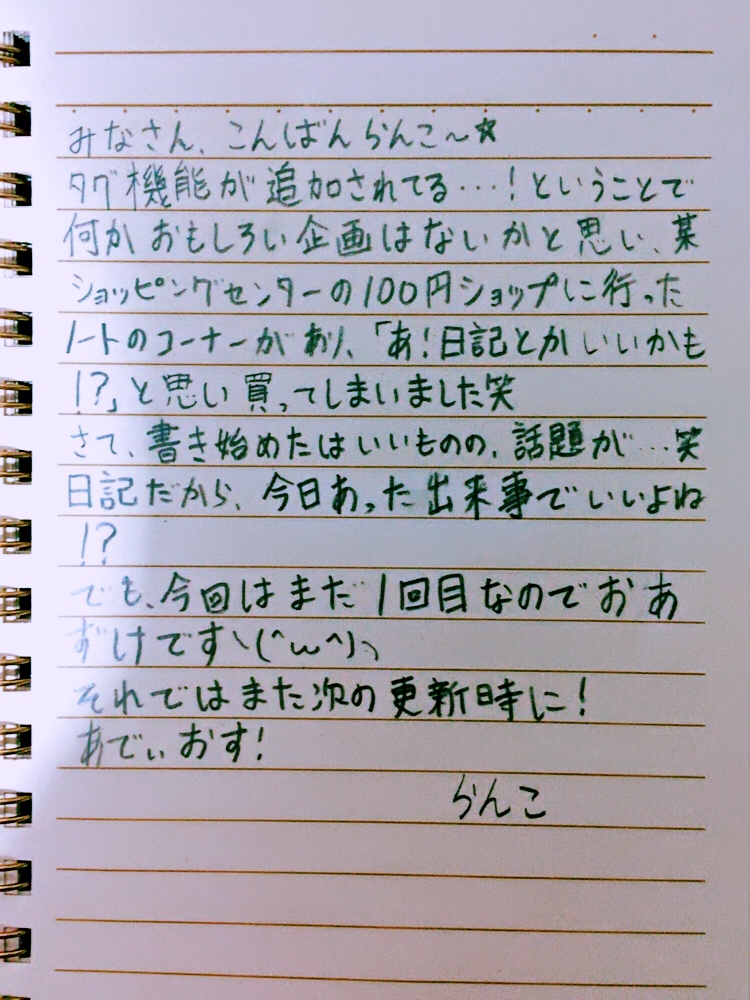 みなさん、こんばんらんこ～☆
タグ機能が追加されてる…！ということで
何かおもしろい企画はないかと思い、某
ショッピングセンターの100円ショップに行った
ノートのコーナーがあり、「あ!日記とかいいかも
!?」と思い買ってしまいました笑
さて、書き始めたはいいものの、話題が…笑
日記だから、今日あった出来事でいいよね
!?
でも、今回はまだ1回目なのでおあ
ずけですヽ(^ω^)ヽ
それではまた次の更新時に!
あでぃおす!
らんこ